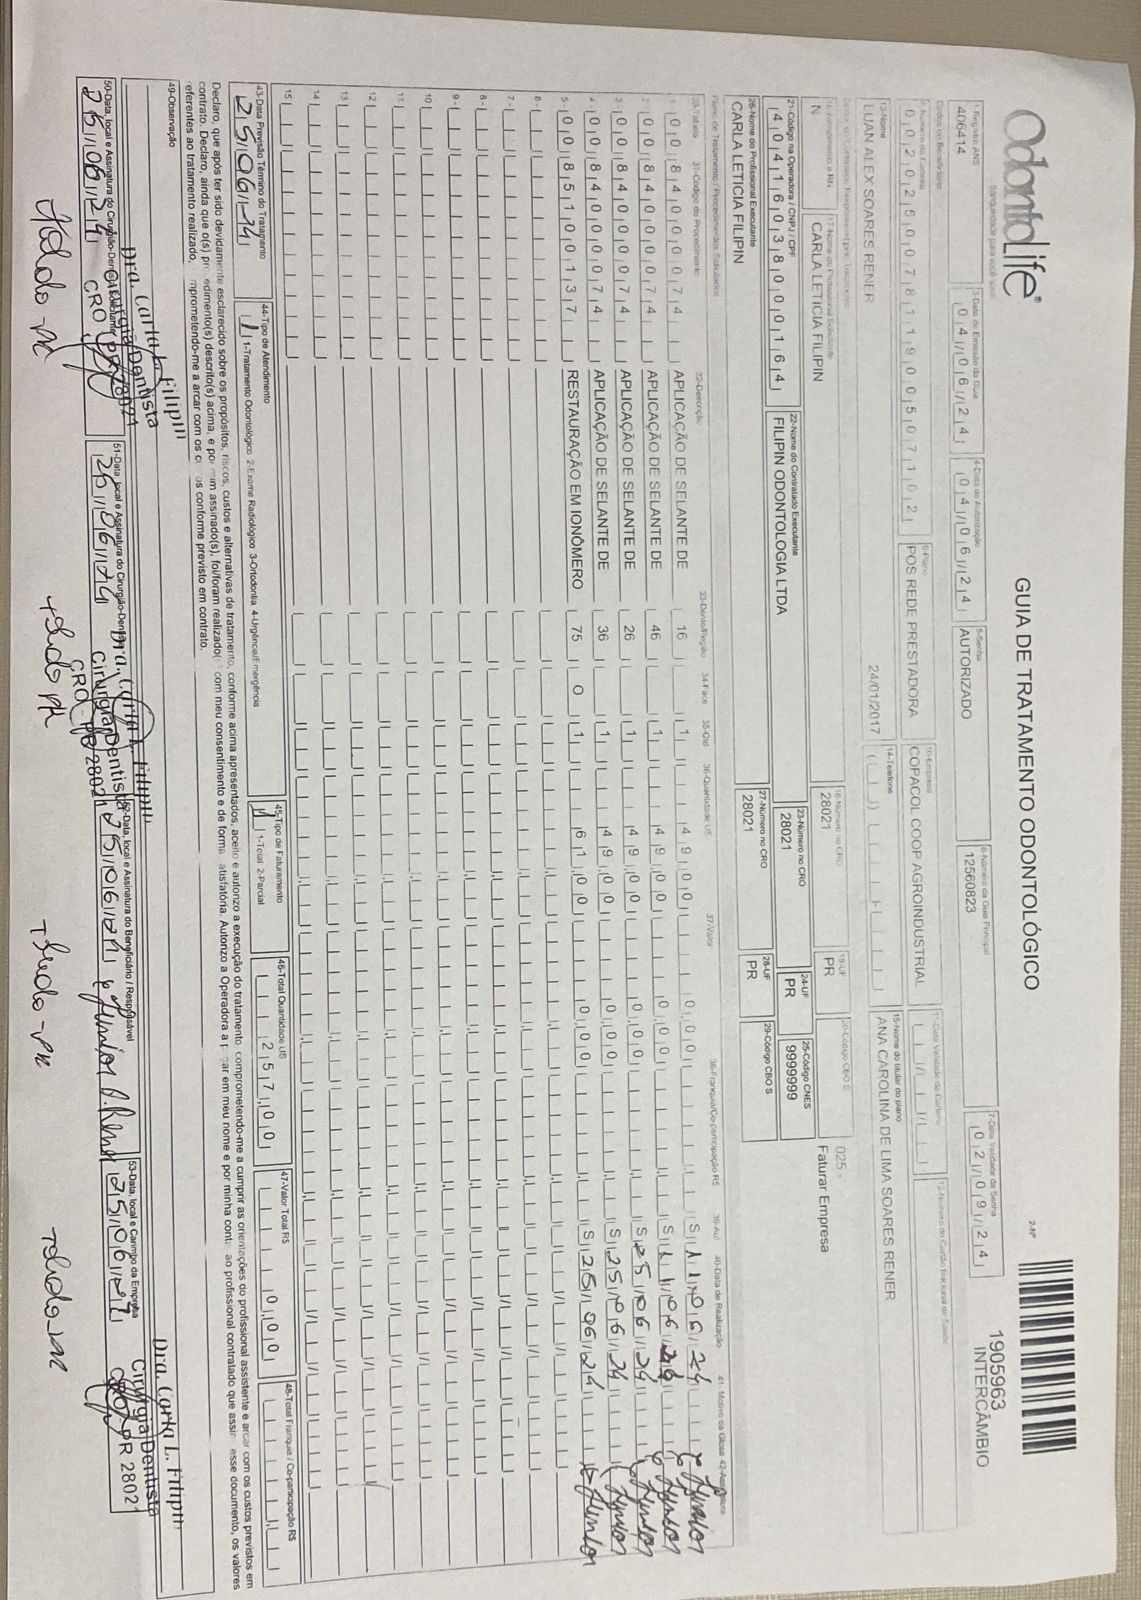 OdontoLife®
tranquilidade para você sorrir
GUIA DE TRATAMENTO ODONTOLÓGICO
2-Nº
1905963
INTERCÂMBIO
1-Registro ANS
406414
3-Data de Emissão da Guia
04/06/24
4-Data de Autorização
04/06/24
5-Senha
AUTORIZADO
6-Número da Guia Principal
12560823
7-Data Validade da Senha
02/09/24
Dados do Beneficiário
8-Número da Carteira
002025007811900507102
9-Plano
POS REDE PRESTADORA
10-Empresa
COPACOL COOP AGROINDUSTRIAL
11-Data Validade da Carteira
12-Número do Cartão Nacional de Saúde
13-Nome
LUAN ALEX SOARES RENER
24/01/2017
14-Telefone
15-Nome do titular do plano
ANA CAROLINA DE LIMA SOARES RENER
16-Atendimento a RN
N
17-Nome do Profissional Solicitante
CARLA LETICIA FILIPIN
18-Número no CRO
28021
19-UF
PR
20-Código CBO S
025 -
Faturar Empresa
21-Código na Operadora / CNPJ / CPF
40416038000164
22-Nome do Contratado Executante
FILIPIN ODONTOLOGIA LTDA
23-Número no CRO
28021
24-UF
PR
25-Código CNES
9999999
26-Nome do Profissional Executante
CARLA LETICIA FILIPIN
27-Número no CRO
28021
28-UF
PR
29-Código CBO S
Plano de Tratamento / Procedimentos Solicitados
30-Tabela 31-Código do Procedimento 32-Descrição 33-Dente/Região 34-Face 35-Qtd 36-Quantidade US 37-Valor 38-Franquia/Co-participação R$ 39-Aut 40-Data de Realização 41-Motivo da Glosa 42-Assinatura
1- 00 84000074 APLICAÇÃO DE SELANTE DE 16 1 49,00 0,00 S 11/06/24 Junior
2- 00 84000074 APLICAÇÃO DE SELANTE DE 46 1 49,00 0,00 S 11/06/24 Junior
3- 00 84000074 APLICAÇÃO DE SELANTE DE 26 1 49,00 0,00 S 25/06/24 Junior
4- 00 84000074 APLICAÇÃO DE SELANTE DE 36 1 49,00 0,00 S 25/06/24 Junior
5- 00 85100137 RESTAURAÇÃO EM IONÔMERO 75 O 1 61,00 0,00 S 25/06/24 Junior
6-
7-
8-
9-
10
11
12
13
14
15
43-Data Previsão Término do Tratamento
25/06/24
44-Tipo de Atendimento
1 1-Tratamento Odontológico 2-Exame Radiológico 3-Ortodontia 4-Urgência/Emergência
45-Tipo de Faturamento
1 1-Total 2-Parcial
46-Total Quantidade US
257,00
47-Valor Total R$
0,00
48-Total Franquia / Co-participação R$
Declaro, que após ter sido devidamente esclarecido sobre os propósitos, riscos, custos e alternativas de tratamento, conforme acima apresentados, aceito e autorizo a execução do tratamento, comprometendo-me a cumprir as orientações do profissional assistente e arcar com os custos previstos em
contrato. Declaro, ainda que o(s) procedimento(s) descrito(s) acima, e por mim assinado(s), foi/foram realizado(s) com meu consentimento e de forma satisfatória. Autorizo a Operadora a pagar em meu nome e por minha conta, ao profissional contratado que assina esse documento, os valores
referentes ao tratamento realizado, comprometendo-me a arcar com os custos conforme previsto em contrato.
49-Observação
50-Data, local e Assinatura do Cirurgião-Dentista Solicitante
25/06/24
Dra. Carla L. Filipin
Cirurgiã Dentista
CRO PR 28021
Toledo-PR
51-Data, local e Assinatura do Cirurgião-Dentista
25/06/24
Dra. Carla L. Filipin
Cirurgiã Dentista
CRO - PR 28021
Toledo PR
52-Data, local e Assinatura do Beneficiário / Responsável
25/06/24 Junior A. Rener
Toledo-PR
53-Data, local e Carimbo da Empresa
25/06/24
Dra. Carla L. Filipin
Cirurgiã Dentista
CRO PR 28021
Toledo-PR